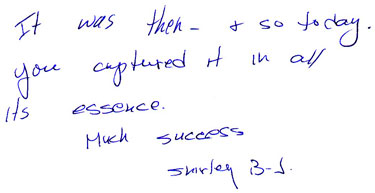 It was then - & so today.
you captured it in all
its essence.
Much success
Shirley B-J.